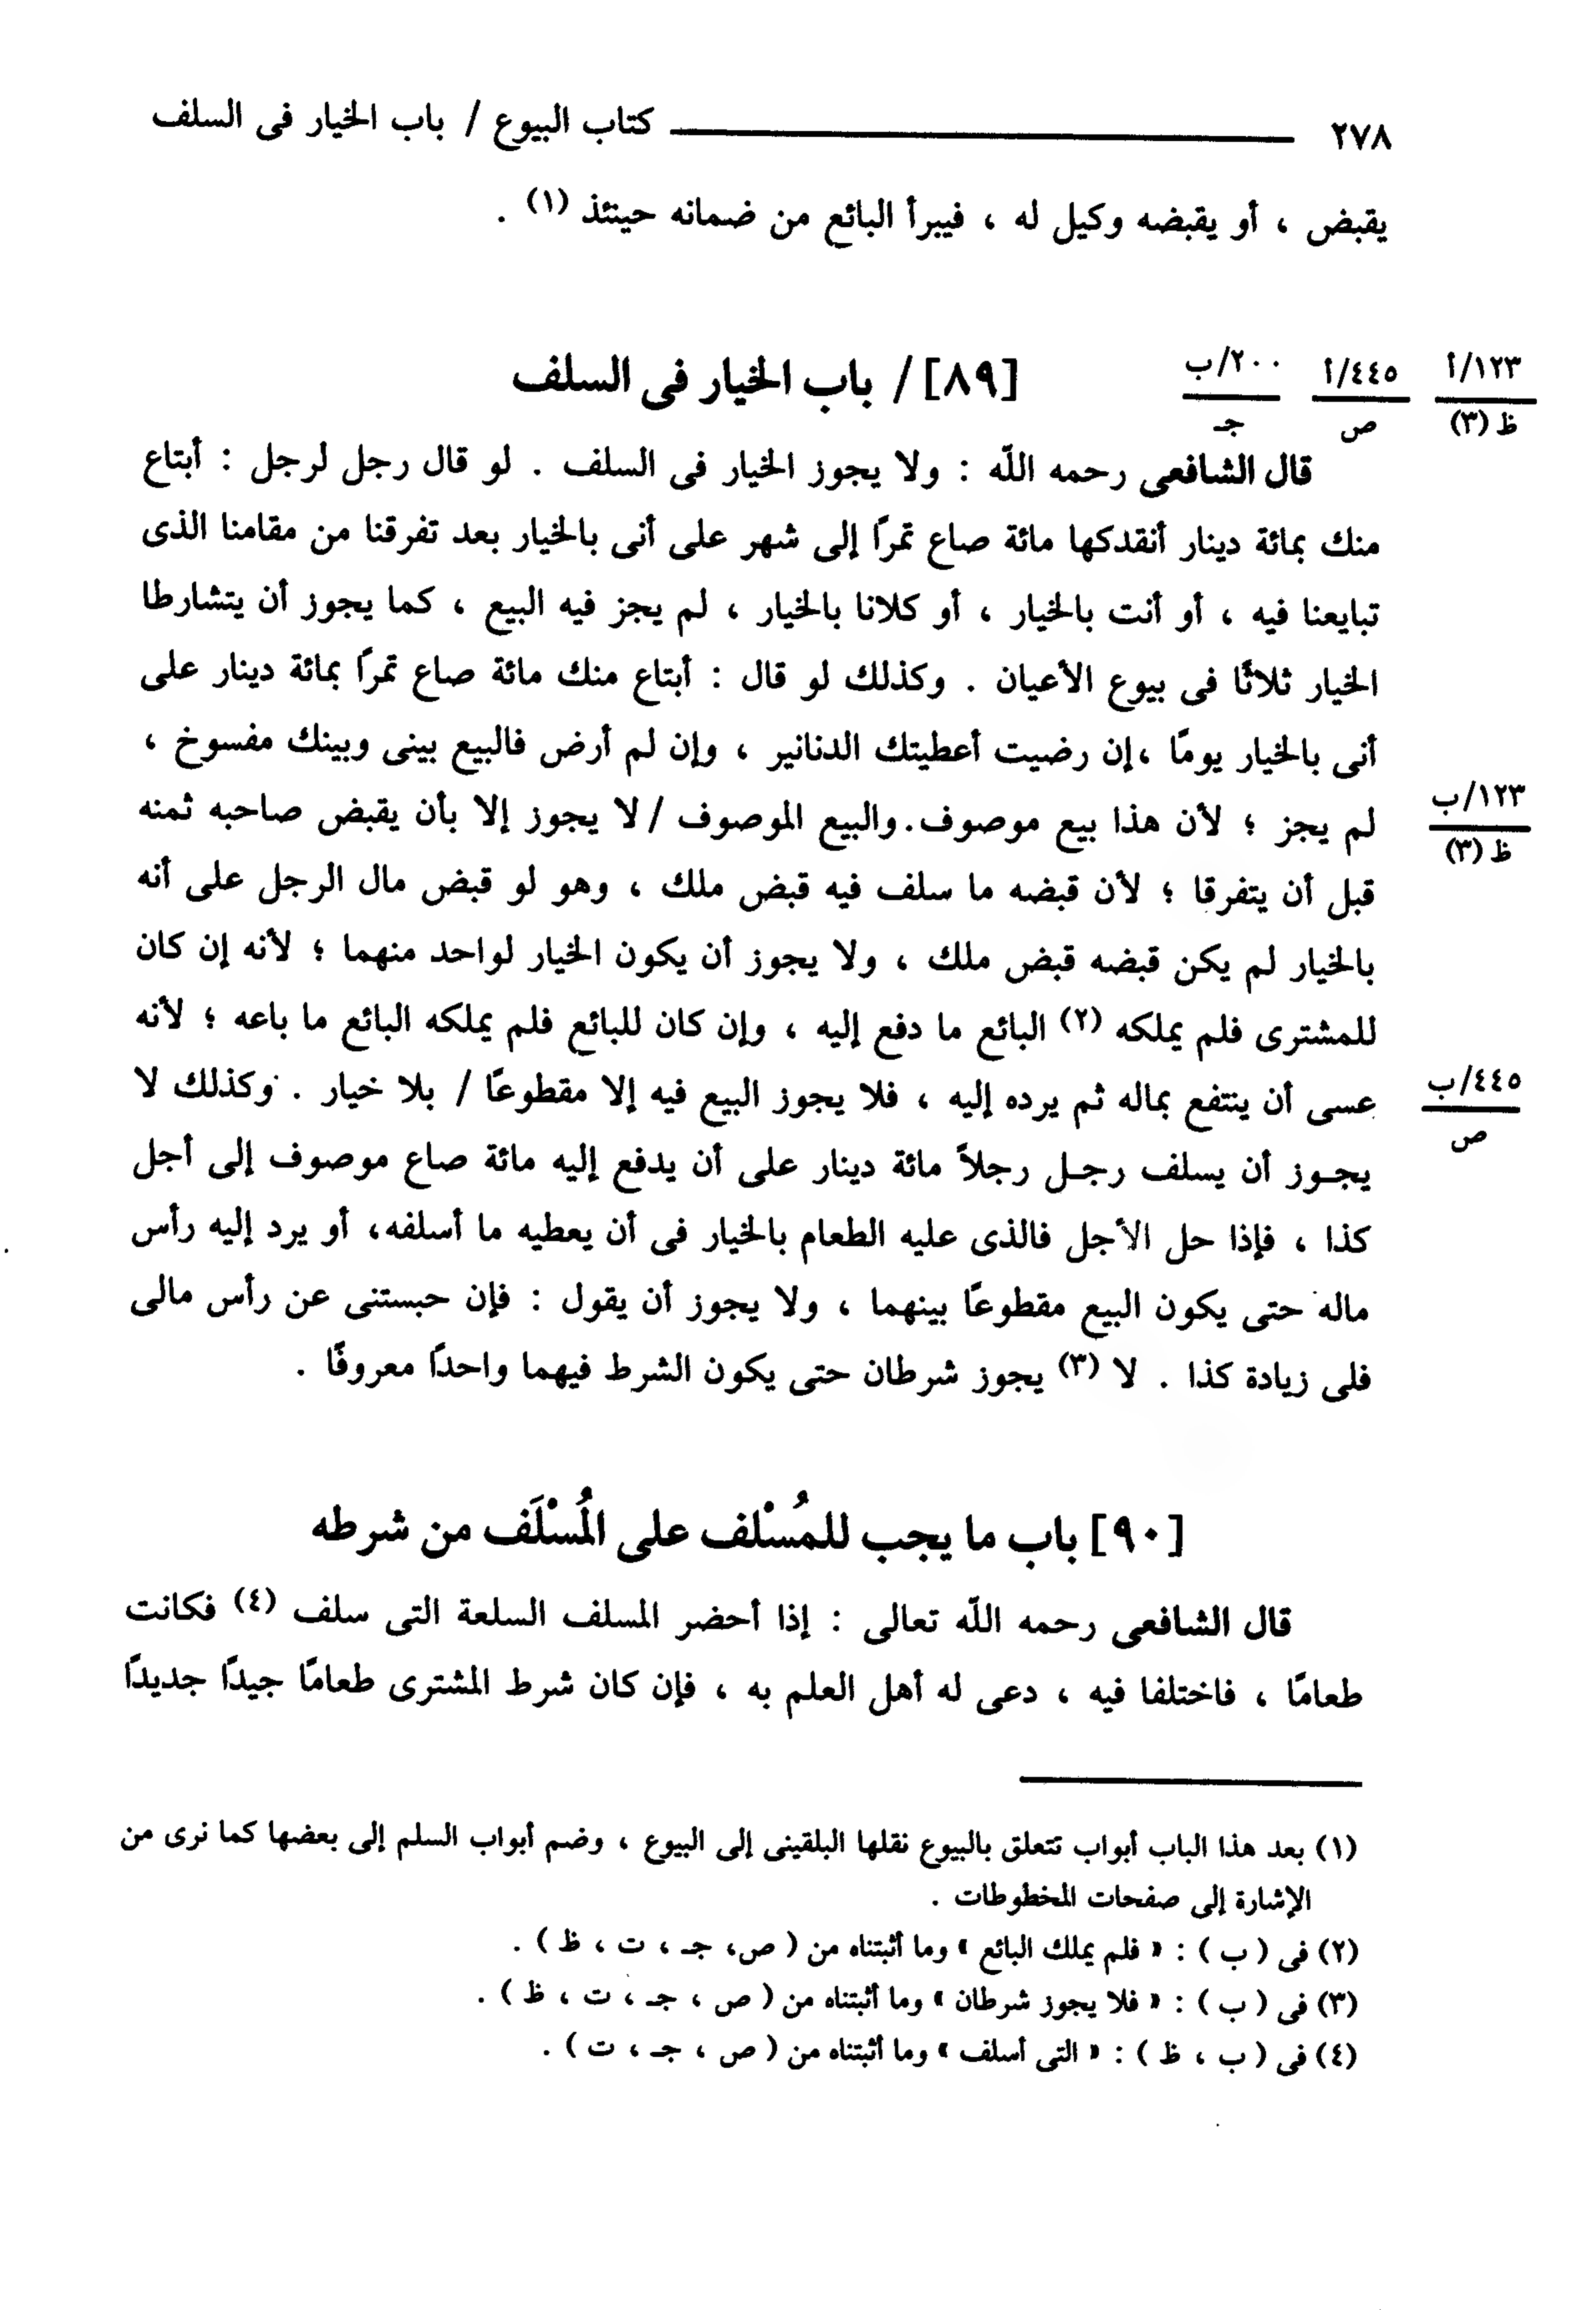 ٢٧٨ كتاب البيوع / باب الخيار فى السلف
يقبض ، أو يقبضه وكيل له ، فيبرأ البائع من ضمانه حينئذ (١) .
[٨٩] / باب الخيار فى السلف
١٢٣/أ
ظ (٣)
٤٤٥/أ
ص
٢٠٠/ب
جـ
قال الشافعى رحمه اللّه : ولا يجوز الخيار فى السلف . لو قال رجل لرجل : أبتاع
منك بمائة دينار أنقدكها مائة صاع تمرًا إلى شهر على أنى بالخيار بعد تفرقنا من مقامنا الذى
تبايعنا فيه ، أو أنت بالخيار ، أو كلانا بالخيار ، لم يجز فيه البيع ، كما يجوز أن يتشارطا
الخيار ثلاثًا فى بيوع الأعيان . وكذلك لو قال : أبتاع منك مائة صاع تمرًا بمائة دينار على
أنى بالخيار يومًا ،إن رضيت أعطيتك الدنانير ، وإن لم أرض فالبيع بينى وبينك مفسوخ ،
لم يجز ؛ لأن هذا بيع موصوف.والبيع الموصوف /لا يجوز إلا بأن يقبض صاحبه ثمنه
١٢٣/ب
ظ (٣)
قبل أن يتفرقا ؛ لأن قبضه ما سلف فيه قبض ملك ، وهو لو قبض مال الرجل على أنه
بالخيار لم يكن قبضه قبض ملك ، ولا يجوز أن يكون الخيار لواحد منهما ؛ لأنه إن كان
للمشترى فلم يملكه (٢) البائع ما دفع إليه ، وإن كان للبائع فلم يملكه البائع ما باعه ؛ لأنه
عسى أن ينتفع بماله ثم يرده إليه ، فلا يجوز البيع فيه إلا مقطوعًا / بلا خيار . وكذلك لا
٤٤٥/ب
ص
يجـوز أن يسلف رجـل رجلاً مائة دينار على أن يدفع إليه مائة صاع موصوف إلى أجل
كذا ، فإذا حل الأجل فالذى عليه الطعام بالخيار فى أن يعطيه ما أسلفه، أو يرد إليه رأس
ماله حتى يكون البيع مقطوعًا بينهما ، ولا يجوز أن يقول : فإن حبستنى عن رأس مالى
فلى زيادة كذا . لا (٣) يجوز شرطان حتى يكون الشرط فيهما واحدًا معروفًا .
[٩٠] باب ما يجب للمُسْلف على المُسْلَف من شرطه
قال الشافعى رحمه اللّه تعالى : إذا أحضر المسلف السلعة التى سلف (٤) فكانت
طعامًا ، فاختلفا فيه ، دعى له أهل العلم به ، فإن كان شرط المشترى طعامًا جيدًا جديدًا
(١) بعد هذا الباب أبواب تتعلق بالبيوع نقلها البلقينى إلى البيوع ، وضم أبواب السلم إلى بعضها كما نرى من
الإشارة إلى صفحات المخطوطات .
(٢) فى ( ب ) : « فلم يملك البائع » وما أثبتناه من ( ص، جـ ، ت ، ظ ) .
(٣) فى ( ب ) : « فلا يجوز شرطان » وما أثبتناه من ( ص ، جـ ، ت ، ظ ) .
(٤) فى ( ب ، ظ ) : « التى أسلف » وما أثبتناه من ( ص ، جـ ، ت ) .